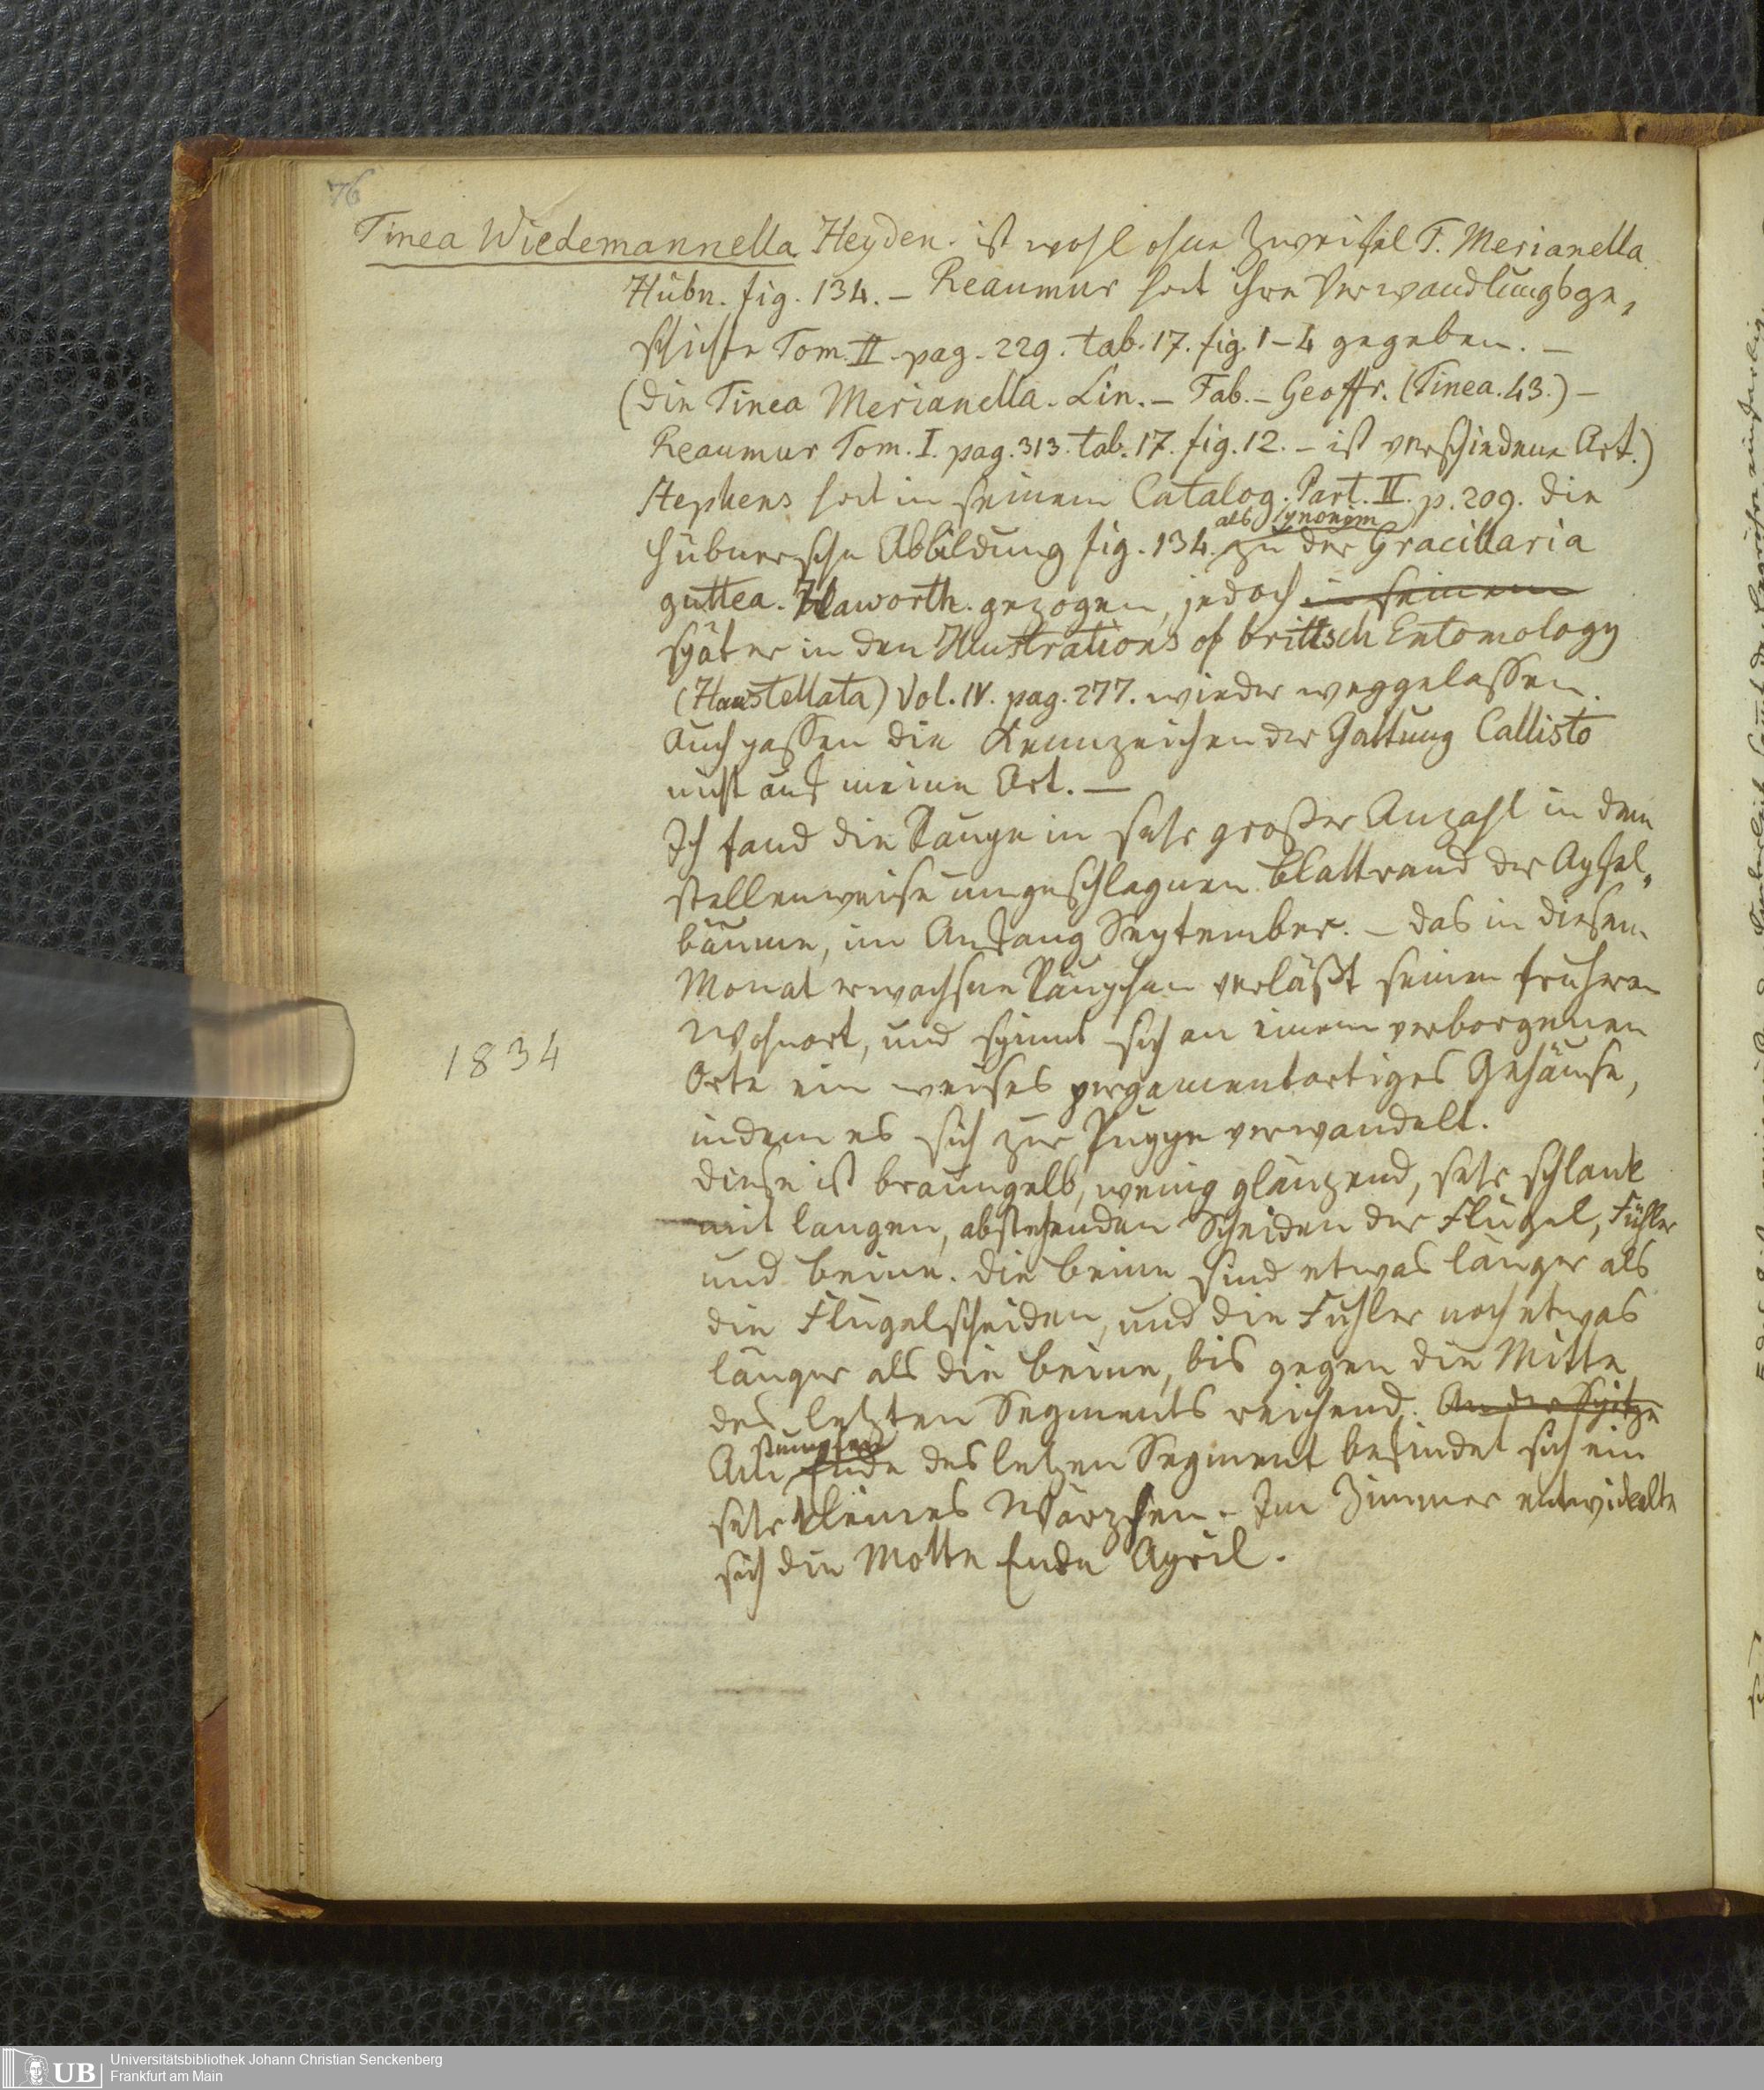 76
Tinea Wiedemannella Heyden. ist wohl ohne Zweifel T. Merianella
Hübn. fig. 134. – Reaumur hat ihre Verwandlungsge-
schichte Tom. II. pag. 229. tab. 17. fig. 1–4 gegeben. –
(die Tinea Merianella. Lin. – Fab. – Geoffr. (Tinea. 43.) –
Reaumur Tom. I. pag. 313. tab. 17. fig. 12. – ist verschiedene Art.)
Stephens hat in seinem Catalog. Part. II. p. 209. die
als Synonim
Hübnersche Abbildung fig. 134. zu der Gracillaria
guttea. Haworth. gezogen, jedoch in seinem
später in den Illustrations of brittsch Entomology
(Haustellata) Vol. IV. pag. 277. wieder weggelassen.
Auch passen die Kennzeichen der Gattung Callisto
nicht auf meine Art. —
Ich fand die Raupe in sehr großer Anzahl in dem
stellenweise umgeschlagnen Blattrand der Apfel-
bäume, im Anfang September. – das in diesem
Monat erwachsne Räupchen verläßt seinen frühern
1834
Wohnort, und spinnt sich an einem verborgenen
Orte ein weises pergamentartiges Gehäuse,
indem es sich zur Puppe verwandelt.
diese ist braungelb, wenig glänzend, sehr schlank
mit langen, abstehenden Scheiden der Flügel, Fühler
und beine. die beine sind etwas länger als
die Flügelscheiden, und die Fühler noch etwas
länger als die beine, bis gegen die Mitte
des letzten Segments reichend. An der Spitze
stumpfen
Am Ende des letzen Segment befindet sich ein
sehr kleines Wärzchen. – Im Zimmer entwickelte
sich die Motte Ende April.
Universitätsbibliothek Johann Christian Senckenberg
UB
Frankfurt am Main